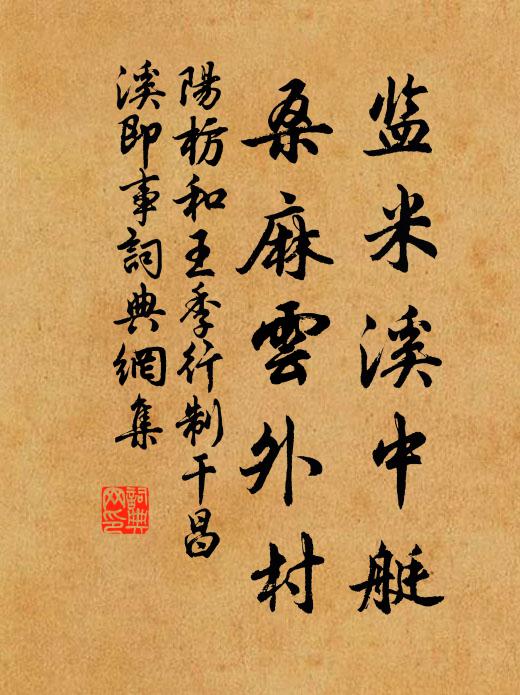 盐米溪中艇
桑麻雲外村
陽枋和王季行制干昌
溪即事詞典網集
詞典
网印